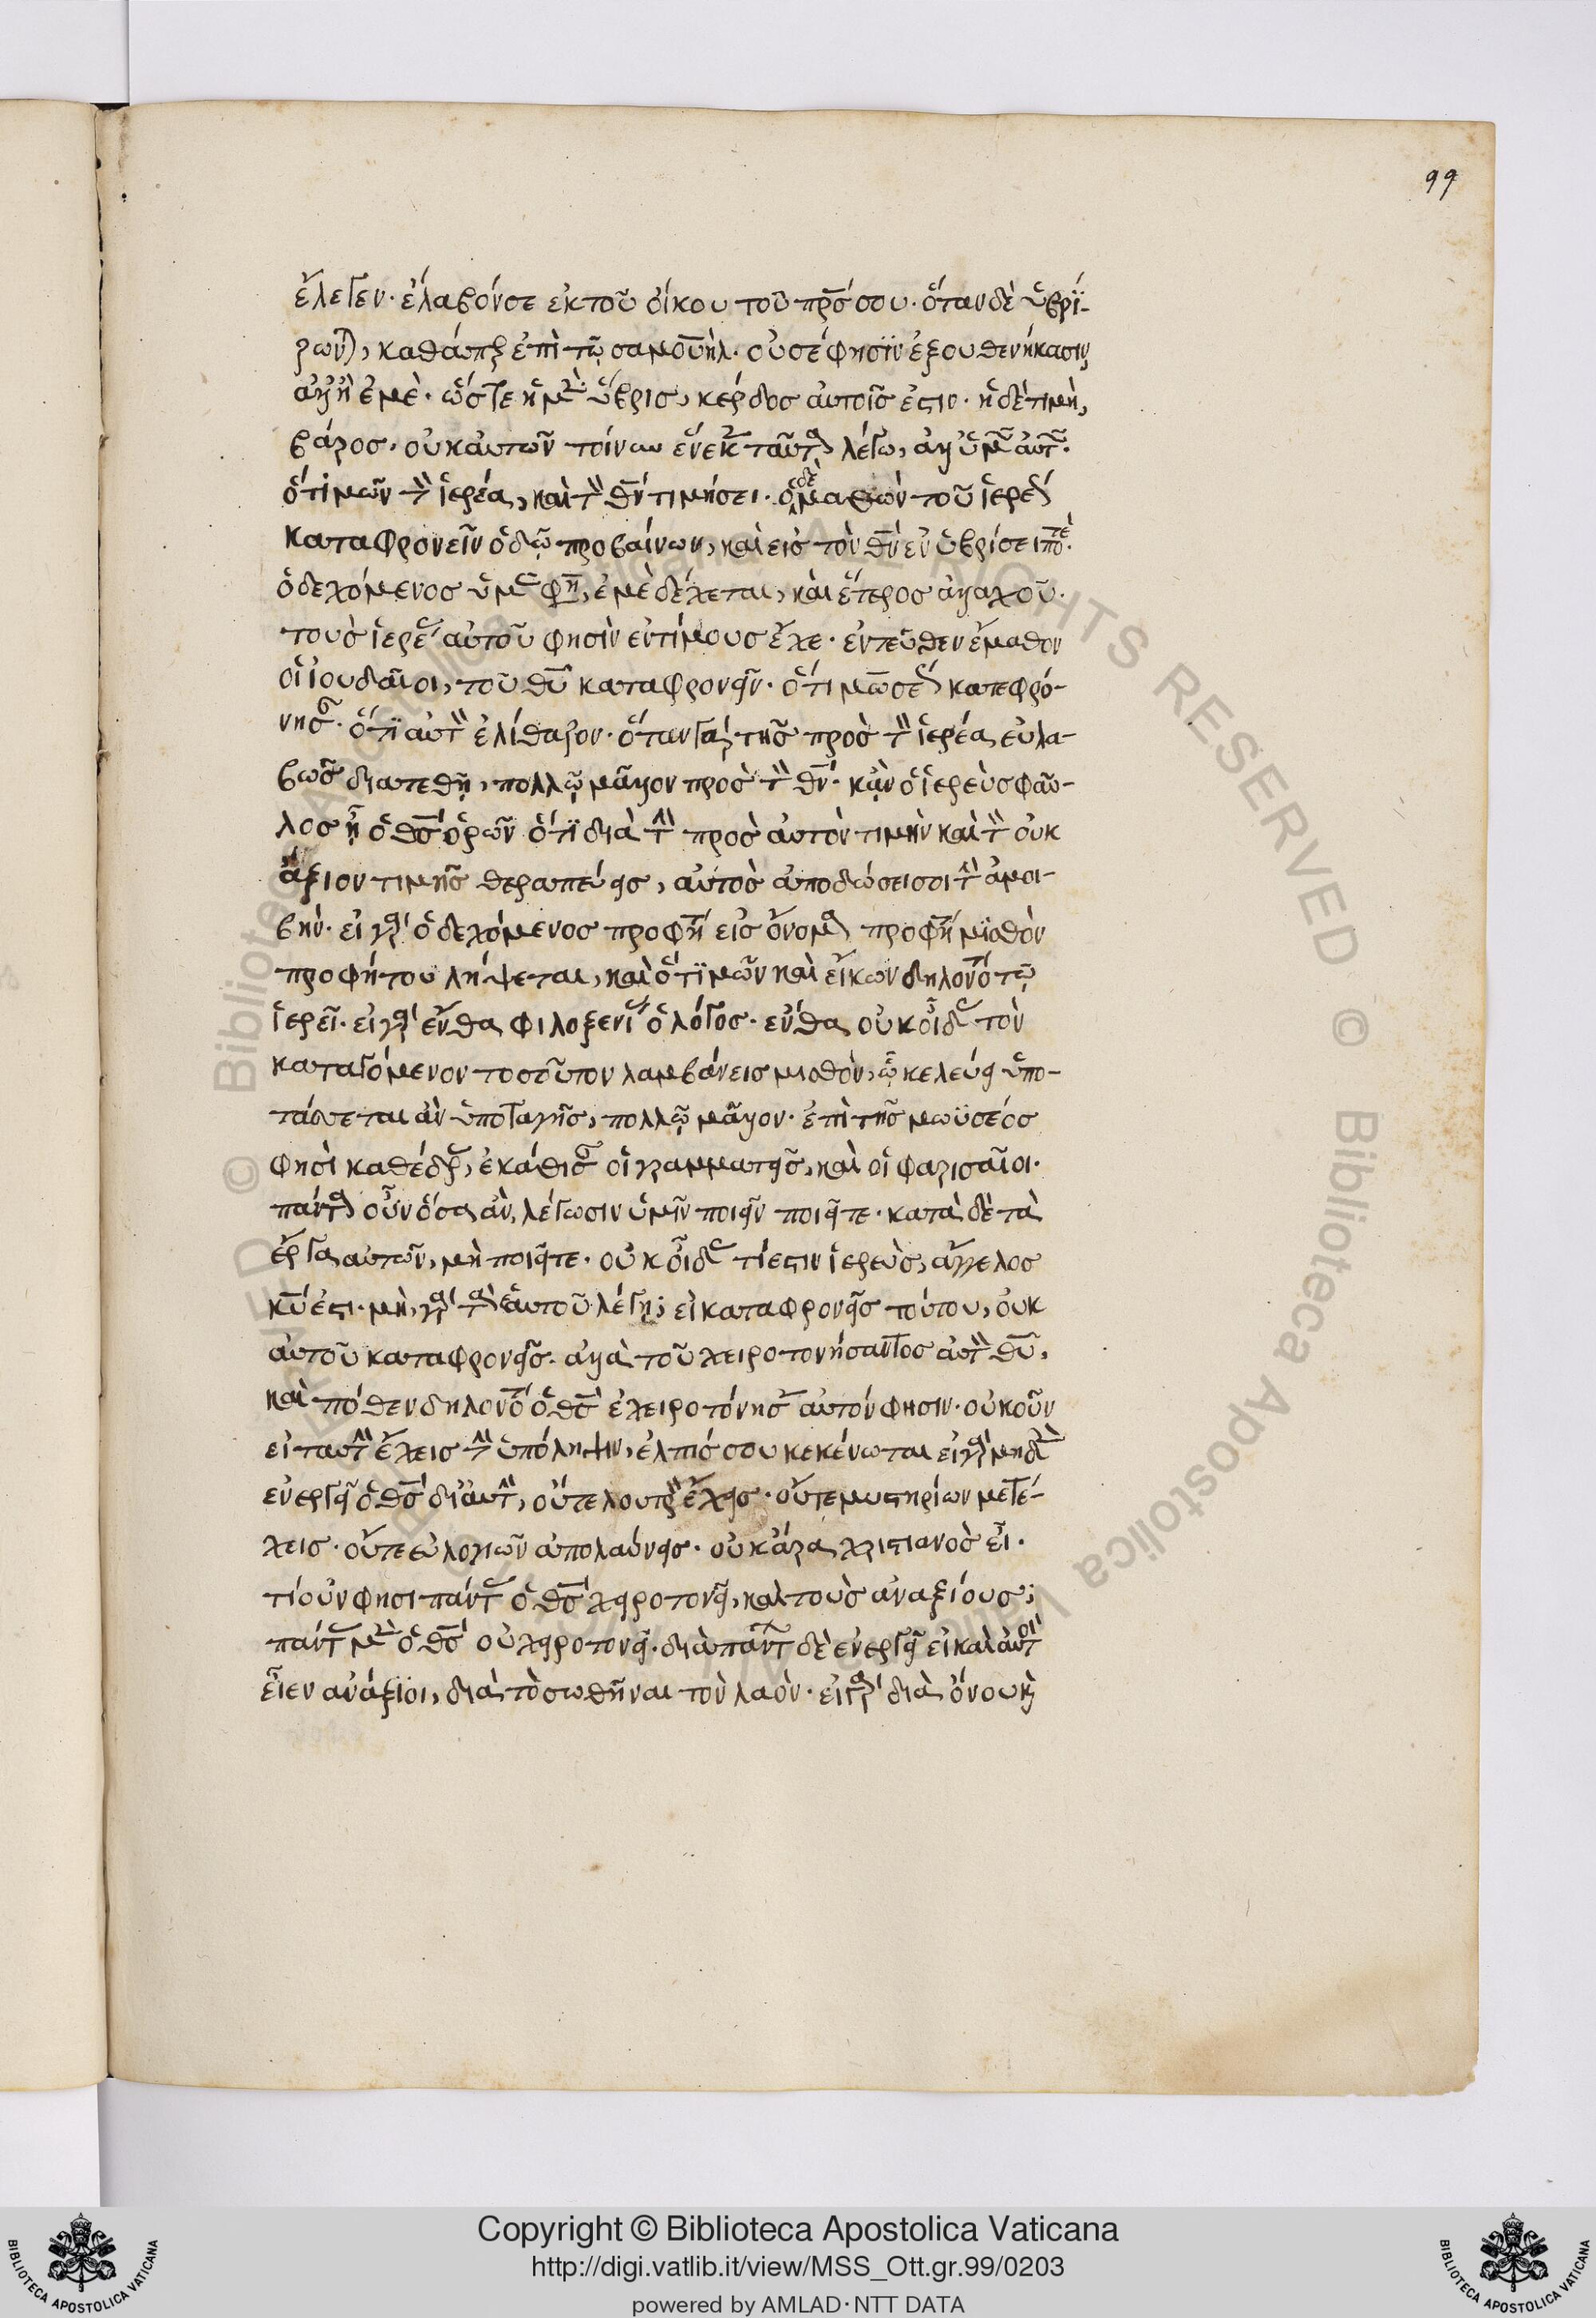 99
ἔλεγεν· ἐλαβόν σε ἐκ τοῦ οἴκου τοῦ πρ̅ς σου· ὅταν δὲ ὑβρί-
ζων), καθάπερ ἐπὶ τῷ σαμουὴλ· οὐ σέ φησὶν ἐξουθενήκασιν
ἀλλ' ἢ ἐμὲ· ὥστε ἡ μὲν ὕβρις, κέρδος αὐτοῖς ἐστιν· ἡ δὲ τιμὴ,
βάρος· οὐκ αὐτῶν τοίνυν ἕνεκεν ταῦτα λέγω, ἀλλ' ὑμῶν αὐτῶν·
ὁ τιμῶν τὸν ἱερέα, καὶ τὸν θν̅ τιμήσει· ὁ δὲ μαθὼν τοῦ ἱερέως
καταφρονεῖν ὁδῷ προβαίνων, καὶ εἰς τὸν θν̅ ἐνυβρίσει ποτὲ·
ὁ δεχόμενος ὑμᾶς φη, ἐμὲ δέχεται, καὶ ἕτερος ἀλλαχοῦ·
τοὺς ἱερεῖς αὐτοῦ φησὶν ἐντίμους ἔχε· ἐντεῦθεν ἔμαθον
οἱ ἰουδαῖοι, τοῦ θυ̅ καταφρονεῖν· ὅτι μωσέως κατεφρό-
νησαν· ὅτι αὐτὸν ἐλίθαζον· ὅταν γάρ τις πρὸς τὸν ἱερέα εὐλα-
βῶς διατεθῇ, πολλῷ μᾶλλον πρὸς τὸν θν̅· κἂν ὁ ἱερεὺς φαῦ-
λος ᾖ ὁ θς̅ ὁρῶν ὅτι διὰ τὴν πρὸς αὐτὸν τιμὴν καὶ τὸν οὐκ
ἄξιον τιμῆς θεραπεύεις, αὐτὸς ἀποδώσει σοι τὴν ἀμοι-
βήν· εἰ γὰρ ὁ δεχόμενος προφήτην εἰς ὄνομα προφήτου μισθὸν
προφήτου λήψεται, καὶ ὁ τιμῶν καὶ εἴκων δηλονότι τῷ
ἱερεῖ· εἰ γὰρ ἔνθα φιλοξενίας ὁ λόγος· ἔνθα οὐκ οἶδας τὸν
καταγόμενον τοσοῦτον λαμβάνεις μισθὸν, ᾧ κελεύει ὑπο-
τάσσεται ἂν ὑποταγῇς, πολλῷ μᾶλλον· ἐπὶ τῆς μωϋσέος
φησὶ καθέδρας, ἐκάθισαν οἱ γραμματεῖς, καὶ οἱ φαρισαῖοι·
πάντα οὖν ὅσα ἂν λέγωσιν ὑμῖν ποιεῖν ποιεῖτε· κατὰ δὲ τὰ
ἔργα αὐτῶν, μὴ ποιεῖτε· οὐκ οἶδας τί ἐστιν ἱερεὺς, ἄγγελος
κυ̅ ἐστι· μὴ γὰρ τὰ ἑαυτοῦ λέγει; εἰ καταφρονεῖς τούτου, οὐκ
αὐτοῦ καταφρονεῖς· ἀλλὰ τοῦ χειροτονήσαντος αὐτὸν θυ̅,
καὶ πόθεν δηλονότι ὁ θς̅ ἐχειροτόνησεν αὐτόν φησιν· οὐκοῦν
εἰ ταύτην ἔχεις τὴν ὑπόληψιν, ἐλπίς σου κεκένωται εἰ γὰρ μηδὲν
ἐνεργεῖ ὁ θς̅ δι' αὐτὴν, οὔτε λουτρὸν ἔχεις· οὔτε μυστηρίων μετέ-
χεις· οὔτε εὐλογιῶν ἀπολαύεις· οὐκ ἄρα χριστιανὸς εἶ·
τί οὖν φησι πάντας ὁ θς̅ χειροτονεῖ, καὶ τοὺς ἀναξίους;
πάντας μὲν ὁ θς̅ οὐ χειροτονεῖ· διὰ πάντων δὲ ἐνεργεῖ εἰ καὶ αὐτοὶ
εἶεν ἀνάξιοι, διὰ τὸ σωθῆναι τὸν λαὸν· εἰ γὰρ διὰ ὄνου καὶ
Copyright © Biblioteca Apostolica Vaticana
http://digi.vatlib.it/view/MSS_Ott.gr.99/0203
powered by AMLAD · NTT DATA